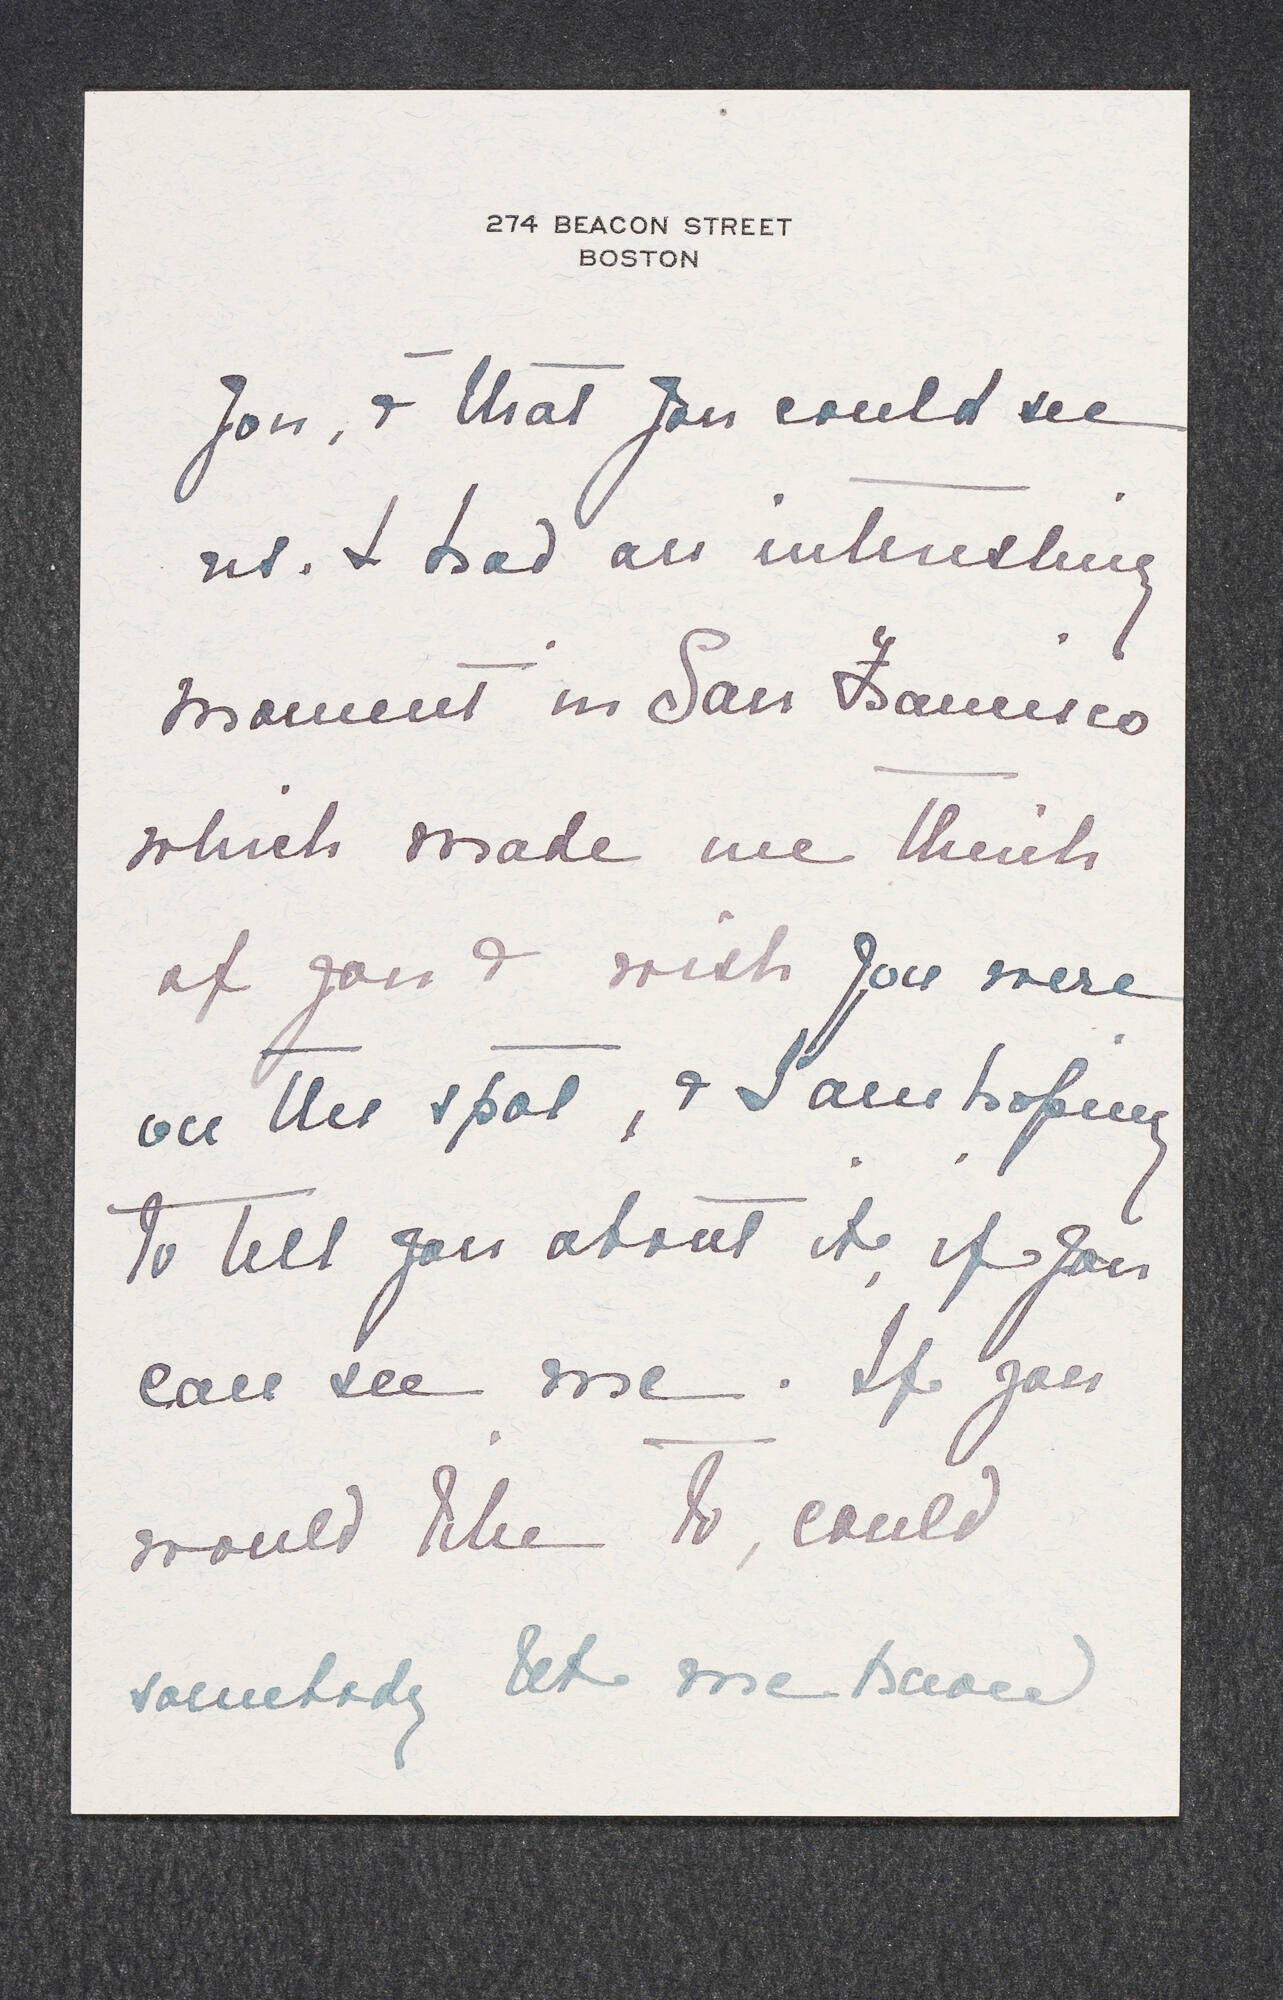 274 BEACON STREET
BOSTON
you, & that you could see
us. I had an interesting
moment in San Francisco
which made me think
of you & wish you were
on the spot, & I am hoping
to tell you about it, if you
can see me. If you
would like to, could
somebody let me know